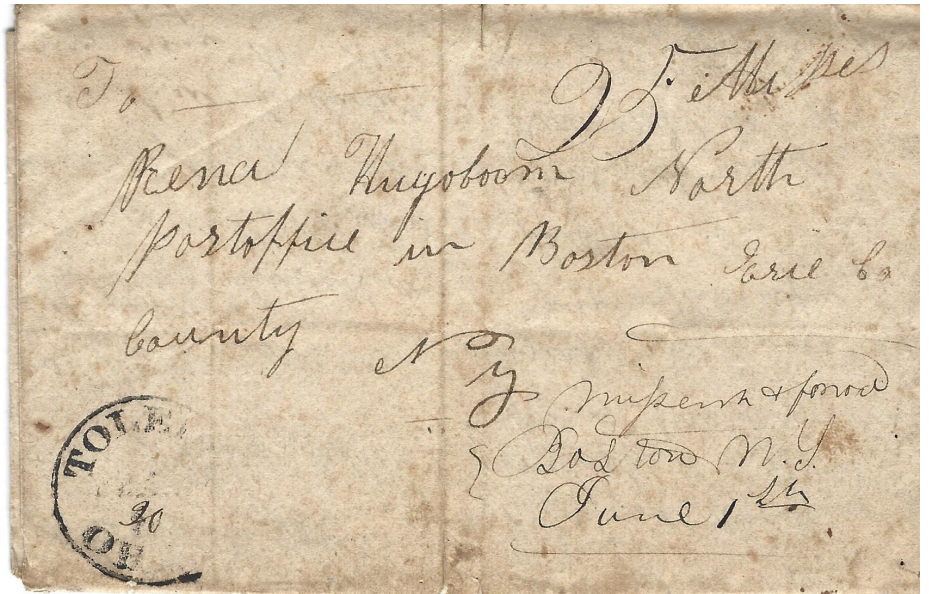 To
25
Rena Hugoboom North
Postoffice in Boston Erie Co
County
N Y
missent & forwd
Boston N.Y.
June 1st
TOLE
20
HIO